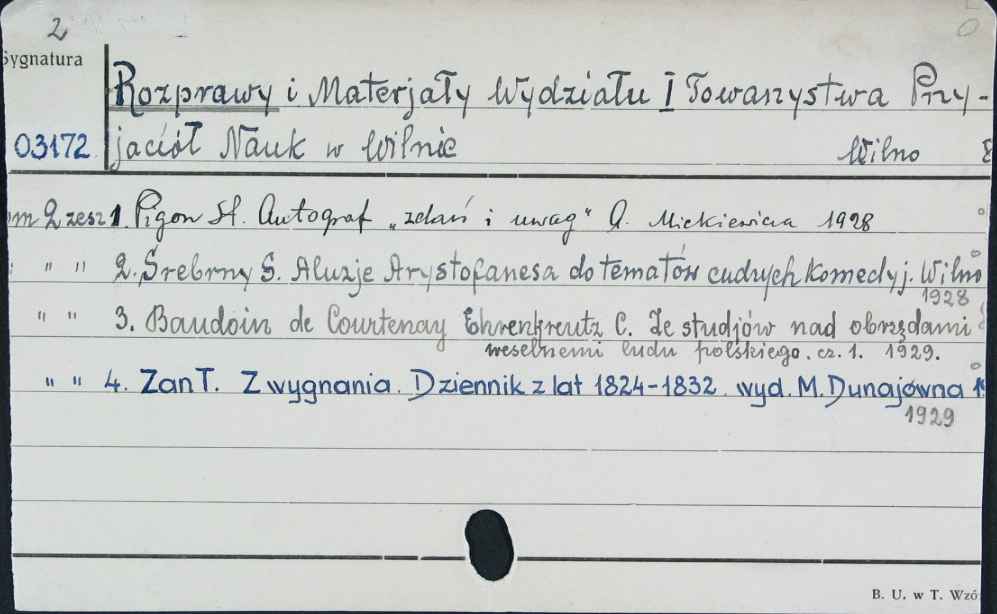 2
Sygnatura
Rozprawy i Materjały Wydziału I Towarzystwa Przy-
03172 jaciół Nauk w Wilnie Wilno
m 2 zesz 1. Pigon St. Autograf „zdań i uwag" A. Mickiewicza 1928
" " 2. Srebrny S. Aluzje Arystofanesa do tematów cudzych komedyj. Wilno
1928
" " 3. Baudoin de Courtenay Ehrenkreutz C. Ze studjów nad obrzędami
weselnemi ludu polskiego. cz. 1. 1929.
" " 4. Zan T. Z wygnania. Dziennik z lat 1824-1832. wyd. M. Dunajówna
1929
B. U. w T. Wzó